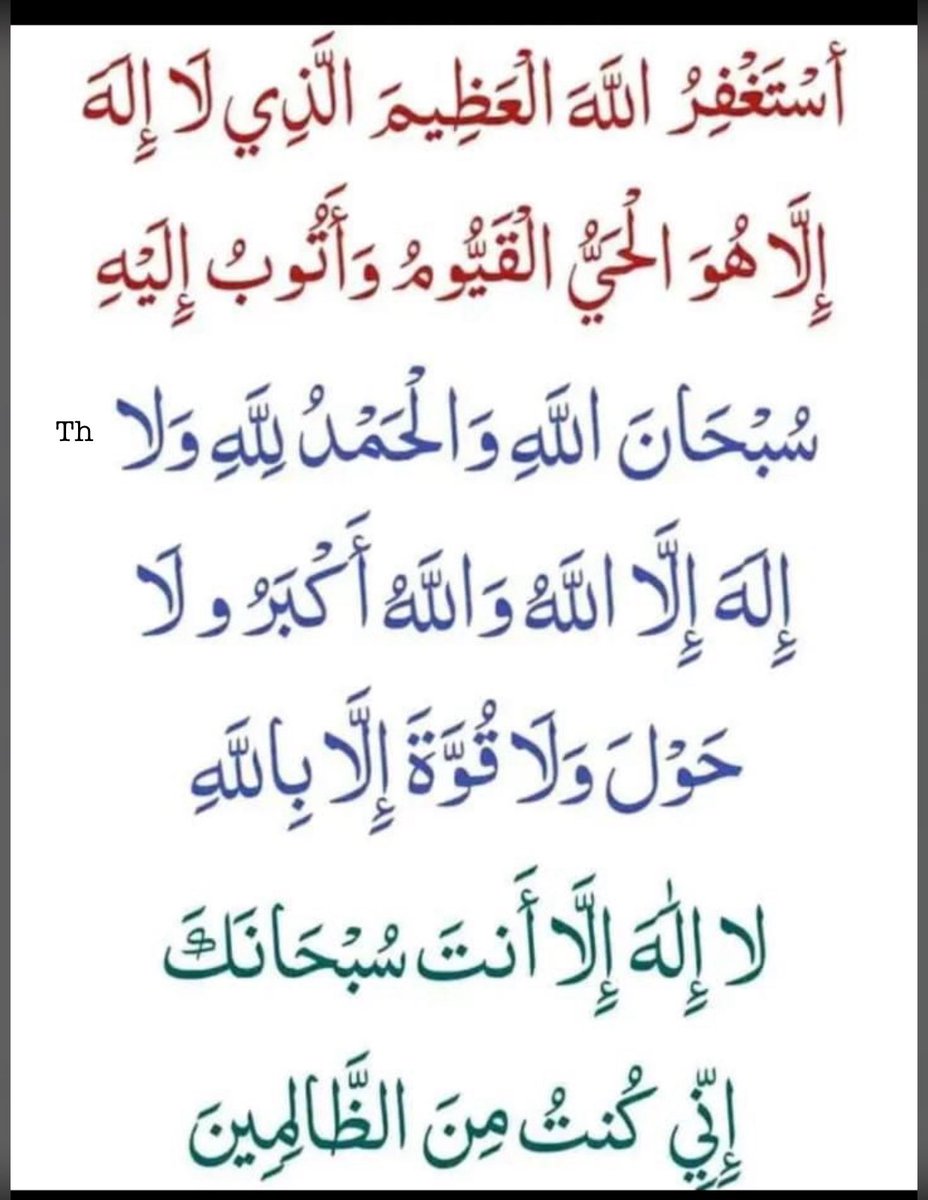 أَسْتَغْفِرُ اللَّهَ الْعَظِيمَ الَّذِي لَا إِلَهَ
إِلَّا هُوَ الْحَيُّ الْقَيُّومُ وَأَتُوبُ إِلَيْهِ
سُبْحَانَ اللَّهِ وَالْحَمْدُ لِلَّهِ وَلا Th
إِلَهَ إِلَّا اللَّهُ وَاللَّهُ أَكْبَرُ و لَا
حَوْلَ وَلَا قُوَّةَ إِلَّا بِاللَّهِ
لا إِلَٰهَ إِلَّا أَنتَ سُبْحَانَكَ
إِنِّي كُنتُ مِنَ الظَّالِمِينَ